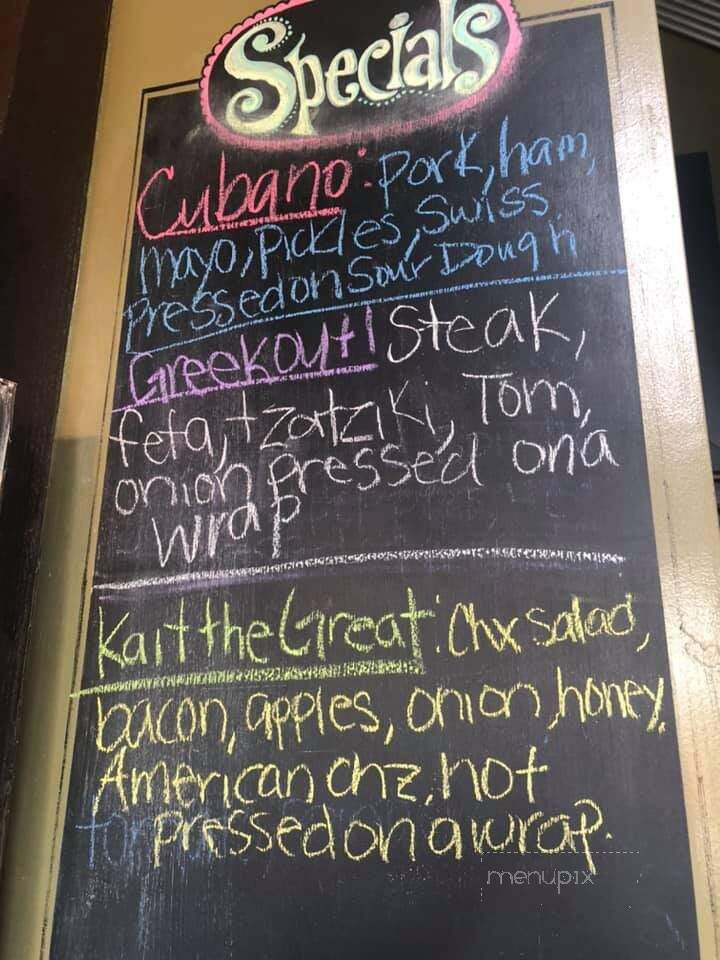 Specials
Cubano: Pork, ham,
mayo, Pickles, Swiss
Pressed on Sour Dough
Greekout! Steak,
feta, tzatziki, Tom,
onion Pressed on a
wrap
Kait the Great: Chx Salad,
bacon, apples, onion, honey,
American chz, not
pressed on a wrap.
menupix